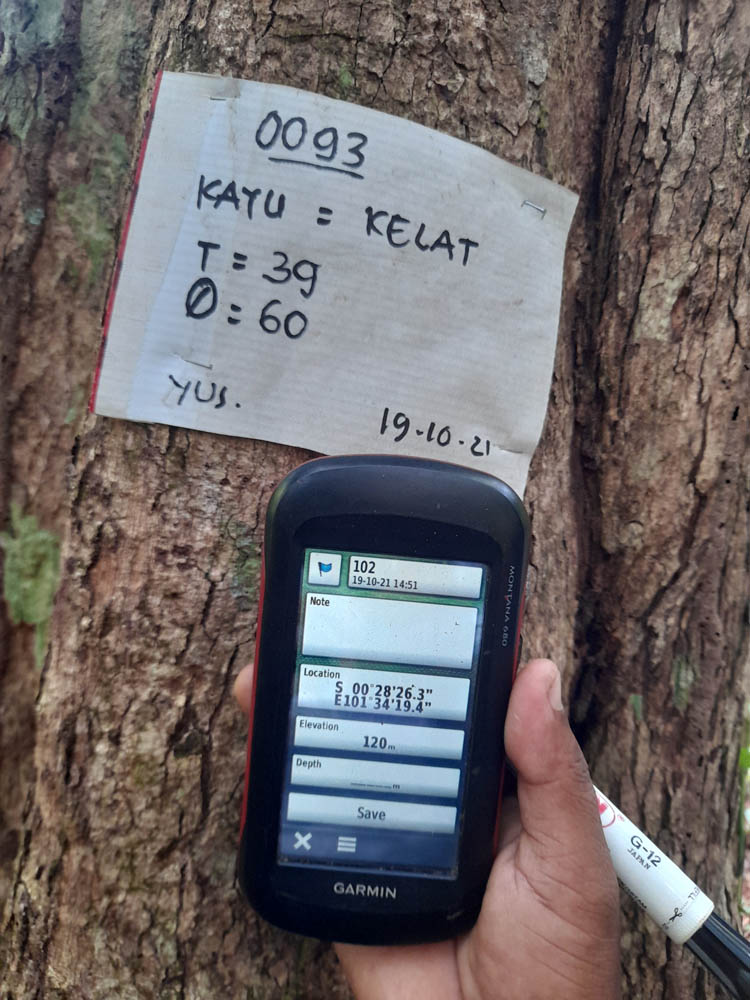 0093
KAYU = KELAT
T = 39
Ø = 60
YUS.
19-10-21
MONTANA 680
102
19-10-21 14:51
Note
Location
S 00°28'26.3"
E101°34'19.4"
Elevation
120m
Depth
______m
Save
GARMIN
G-12
JAPAN